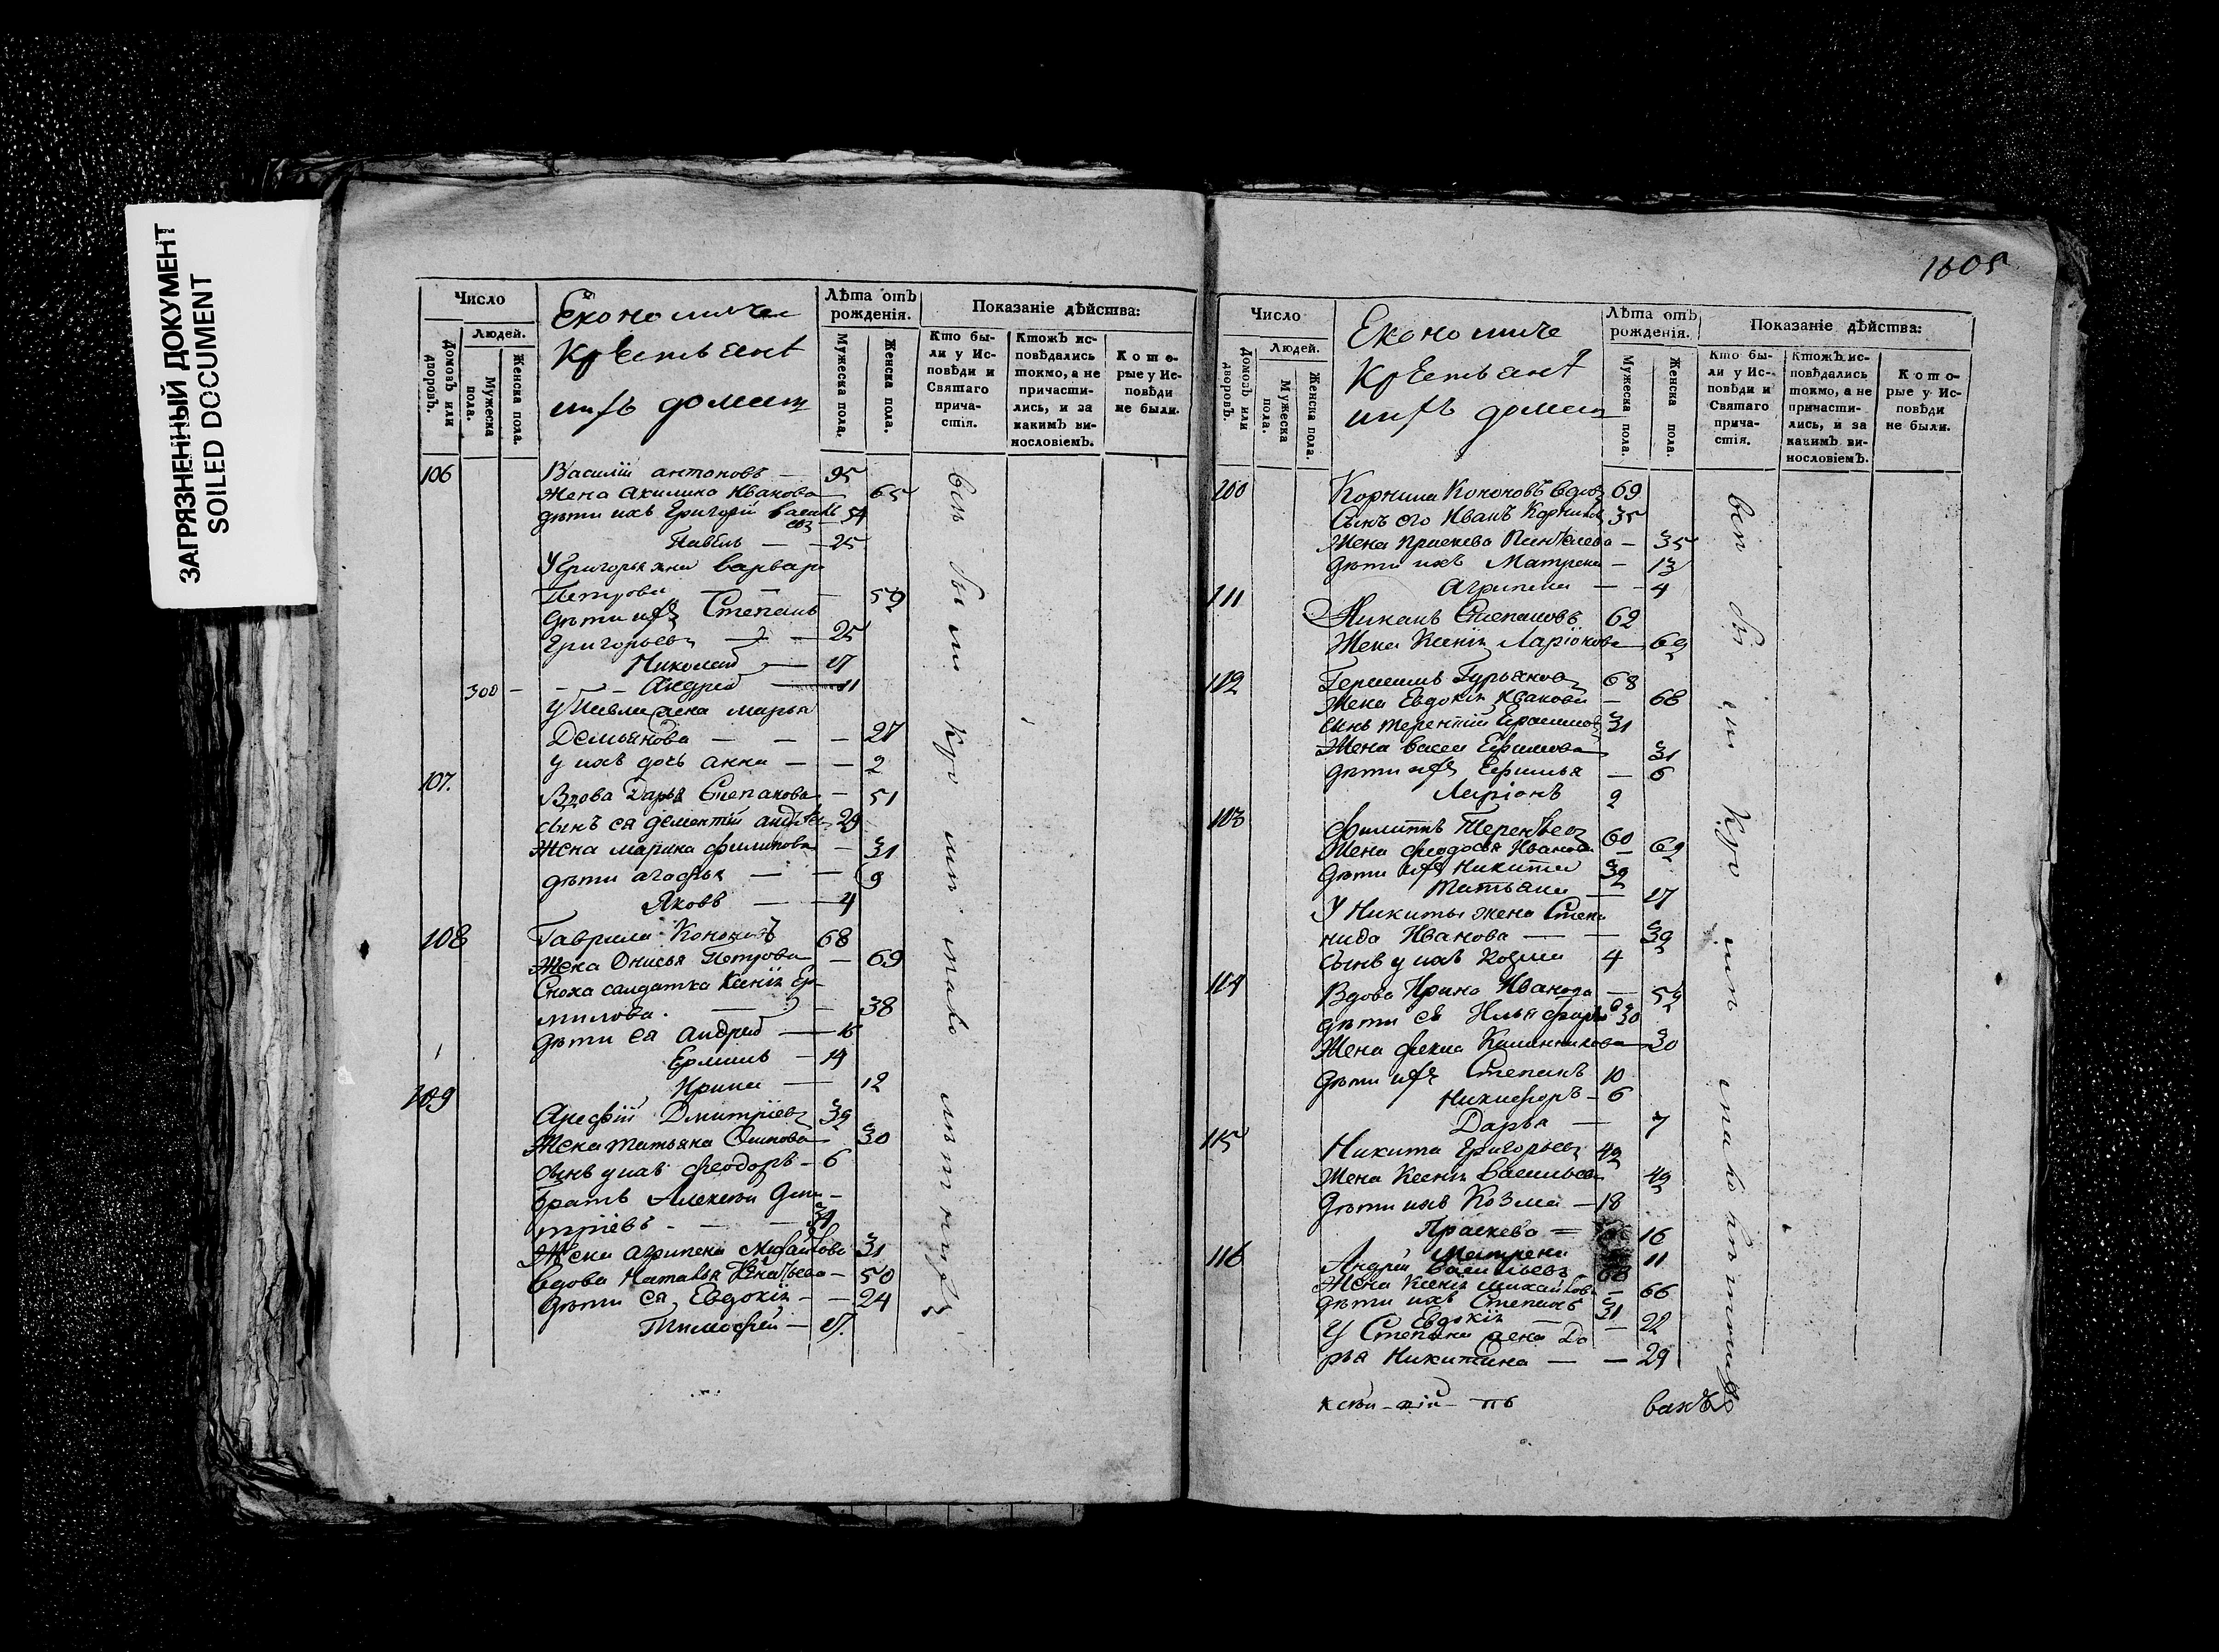 ЗАГРЯЗНЕННЫЙ ДОКУМЕНТ
SOILED DOCUMENT
Число
Людей.
Домовъ или дворовъ.
Мужеска пола.
Женска пола.
Економиче
Крестьянѣ
ихъ домаш
Лѣта отъ рожденія.
Мужеска пола.
Женска пола.
Показаніе дѣйства:
Кто были у Исповѣди и Святаго причастія.
Ктожъ исповѣдались токмо, а не причастились, и за какимъ винословіемъ.
Которые у Исповѣди не были.
106 Василій антоновъ — 95
Жена Акилина Иванова 65
дѣти ихъ Григорій васил 54
Павелъ — 25
У Григорья жена варвара
Петрова — 59
дѣти ихъ Степанъ
Григорьевъ — 25
Николай — 17
300 — Андрей 11
У Павла жена марья
Демьянова — — — 27
у ихъ дочь анна — — 2
107. Вдова Дарья Степанова — 51
сынъ ея дементій 29
Жена марина филипова — 31
дѣти агафья — — 9
Яковъ — 4
108 Гаврила Кононовъ 68
Жена Онисья Петрова — 69
Сноха салдатка Ксенія Ер-
милова. — 38
дѣти ея Андрей — 16
Ермилъ — 14
Ирина — 12
109 Арефій Дмитріевъ 39
Жена татьяна Осипова 30
сынъ у ихъ феодоръ — 6
братъ Алексѣй Дми-
тріевъ — — 34
Жена агрипена Михайлова 31
Вдова Наталья Игнатьева — 50
дѣти ея Евдокія — — 24
Тимофей — 17.
всѣ были кро мѣ мало лѣтнихъ
1605
Число
Людей.
Домовъ или дворовъ.
Мужеска пола.
Женска пола.
Економиче
Крестьянѣ
ихъ домаш
Лѣта отъ рожденія.
Мужеска пола.
Женска пола.
Показаніе дѣйства:
Кто были у Исповѣди и Святаго причастія.
Ктожъ исповѣдались токмо, а не причастились, и за какимъ винословіемъ.
Которые у Исповѣди не были.
Корнила Кононовъ вдов 69
Сынъ его Иванъ Корнилов 35
Жена праскева Пантелева — 35
дѣти ихъ Матрена — 13
Агрипена — — 4
111 Степановъ 62
Жена Ксенія Ларіонова 69
112 Герасимъ Гурьяновъ 68
Жена Евдокія Иванова — 68
сынъ терентій Ерасимовъ 31
Жена васса Ефимова 31
дѣти ихъ Ефимья — 6
Ларіонъ 2
113 филиппъ Терентьевъ 60
Жена феодосья Иванова 69
дѣти ихъ Никита 39
татьяна — 17
У Никиты жена Степа
нида Иванова — — 39
сынъ у ихъ Козма 4
114 Вдова Ирина Иванова — 59
дѣти ея Илья 30
Жена фекла Калинникова — 30
дѣти ихъ Степанъ 10
Никифоръ — 6
Дарья — 7
115 Никита Григорьевъ 49
Жена Ксенія Васильева 49
дѣти ихъ Козма — 18
Праскева — 16
Матрена 11
116 Андрей Васильевъ 68
Жена Ксенія михайлова — 66
дѣти ихъ Степанъ 31
Евдокія — 22
У Степана жена Да
рья Никитина — — 29
всѣ бы ли кро мѣ мало лѣтнихъ